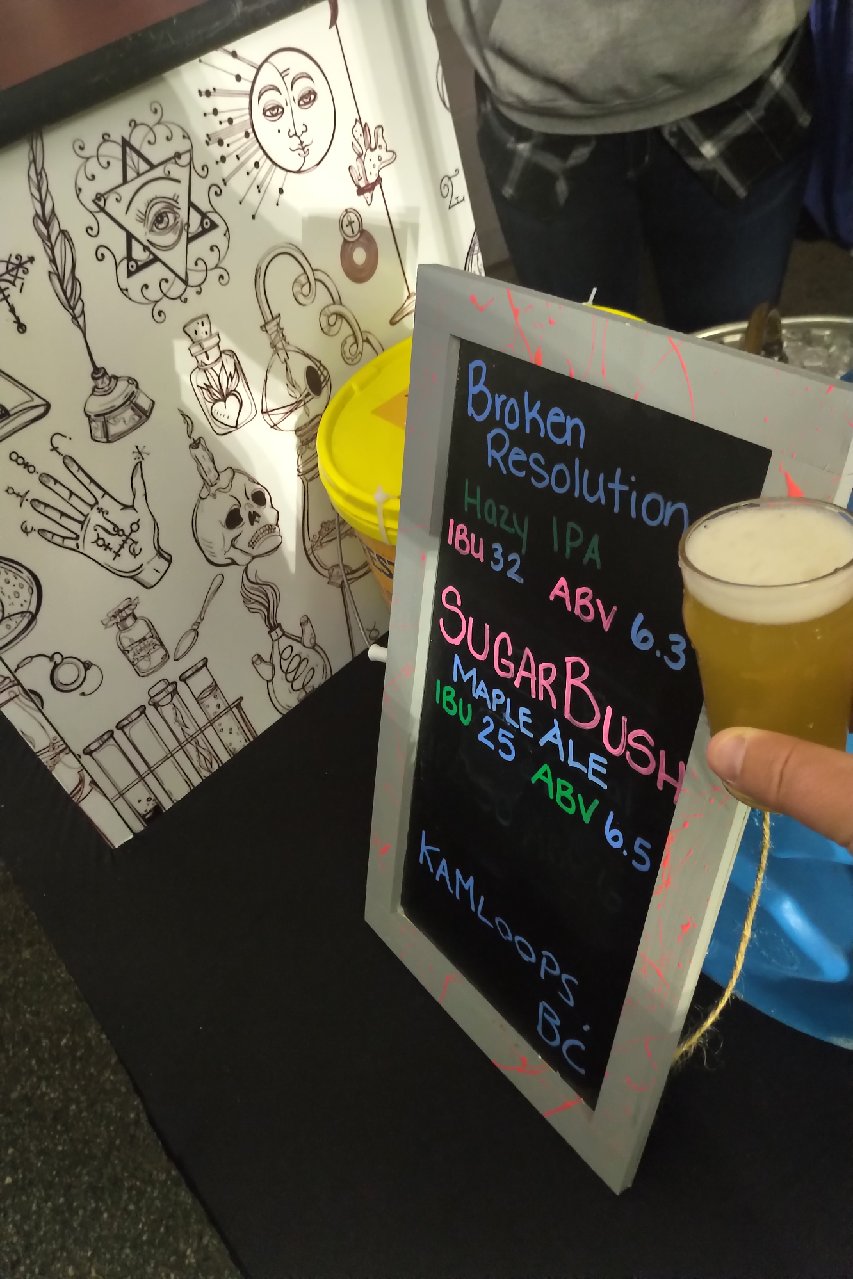 Broken
Resolution
Hazy IPA
IBU 32 ABV 6.3
SUGARBUSH
MAPLE ALE
IBU 25 ABV 6.5
KAMLOOPS.
BC